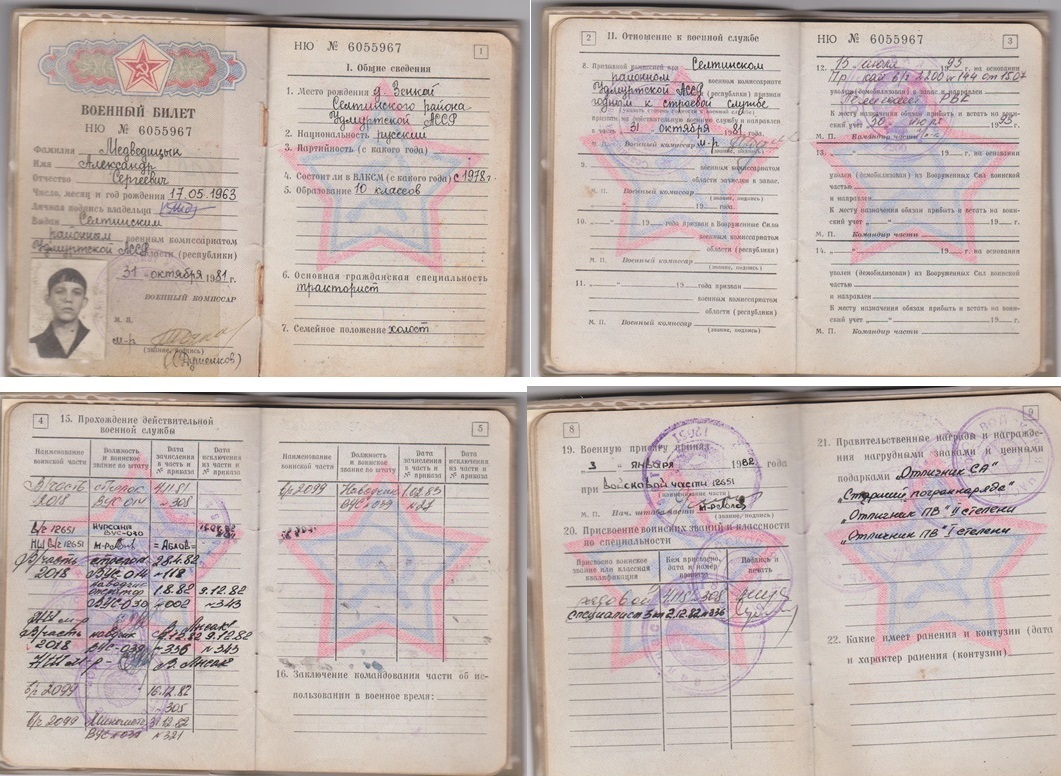 ВОЕННЫЙ БИЛЕТ
НЮ № 6055967
Фамилия Медведицын
Имя Александр
Отчество Сергеевич
Число, месяц и год рождения 17.05.1963
Личная подпись владельца
Выдан Селтинским
районным военным комиссариатом
Удмуртской АССР (республики)
31 октября 1981 г.
ВОЕННЫЙ КОМИССАР
М. П.
м-р
(звание, подпись)
НЮ № 6055967
1
I. Общие сведения
1. Место рождения д
Селтинского района
Удмуртской АССР
2. Национальность русский
3. Партийность (с какого года)
4. Состоит ли в ВЛКСМ (с какого года) с 1978г.
5. Образование 10 класов
6. Основная гражданская специальность
тракторист
7. Семейное положение холост
2
II. Отношение к военной службе
8. Призывной комиссией при Селтинском
районном военном комиссариате
Удмуртской АССР (республики) признан
годным к строевой службе
призван на действительную военную службу и направлен
в часть 31 октября 1981 года.
М. П. Военный комиссар м-р
9.
области зачислен в запас.
М. П. Военный комиссар
(звание, подпись)
19 года.
10. 19 года призван в Вооруженные Силы
военным комиссариатом
области (республики)
М. П. Военный комиссар
(звание, подпись)
11. 19 года призван
военным комиссариатом
области (республики)
М. П. Военный комиссар
(звание, подпись)
НЮ № 6055967
3
12. 15 июля 1983 г. на основании
Приказ в/ч 2200 № 144 от 15.07
уволен (демобилизован) в запас и направлен в
РВК
К месту жительства обязан прибыть и встать на воин-
ский учет 30 июля 1983 г.
М. П. Командир части
13. 19 г. на основании
уволен (демобилизован) из Вооруженных Сил воинской
частью
и направлен
К месту жительства обязан прибыть и встать на воин-
ский учет 19 г.
М. П. Командир части
14. 19 г. на основании
уволен (демобилизован) из Вооруженных Сил воинской
частью
и направлен в
К месту жительства обязан прибыть и встать на воин-
ский учет 19 г.
М. П. Командир части
4
15. Прохождение действительной
военной службы
Наименование воинской части
Должность и воинское звание по штату
Дата зачисления в часть и № приказа
Дата исключения из части и № приказа
В/часть стрелок 4.11.81
2018 ВУС 014 № 308
в/ч 12651 курсант
ВУС-030
НШ в/ч 12651 м-р
В/часть стрелок 28.4.82
2018 ВУС 014 № 118
оператор 1.8.82 9.12.82
ВУС-039 № 002 № 343
В/часть наводчик 9.12.82
2018 ВУС-039 № 336 № 343
в/ч 2099 16.12.82
№ 305
в/ч 2099 31.12.82
№ 321
5
Наименование воинской части
Должность и воинское звание по штату
Дата зачисления в часть и № приказа
Дата исключения из части и № приказа
в/ч 2099 Наводчик 1.02.83
ВУС 039 № 27
16. Заключение командования части об ис-
пользовании в военное время:
8
19. Военную присягу принял
3 января 1982 года
при войсковой части 12651
(наименование части)
М. П. Нач. штаба части м-р
(звание, подпись)
20. Присвоение воинских званий и классности
по специальности
Присвоено воинское звание или классная квалификация
Кем присвоено, дата и номер приказа
Подпись и печать
рядовой 4.11.81 308
специалист 3 от 2.12.82 № 336
9
21. Правительственные награды и награжде-
ния нагрудными знаками и ценными
подарками „Отличник СА"
„Старший пограннаряда"
„Отличник ПВ" II степени
„Отличник ПВ" I степени
22. Какие имеет ранения и контузии (дата
и характер ранения (контузии)